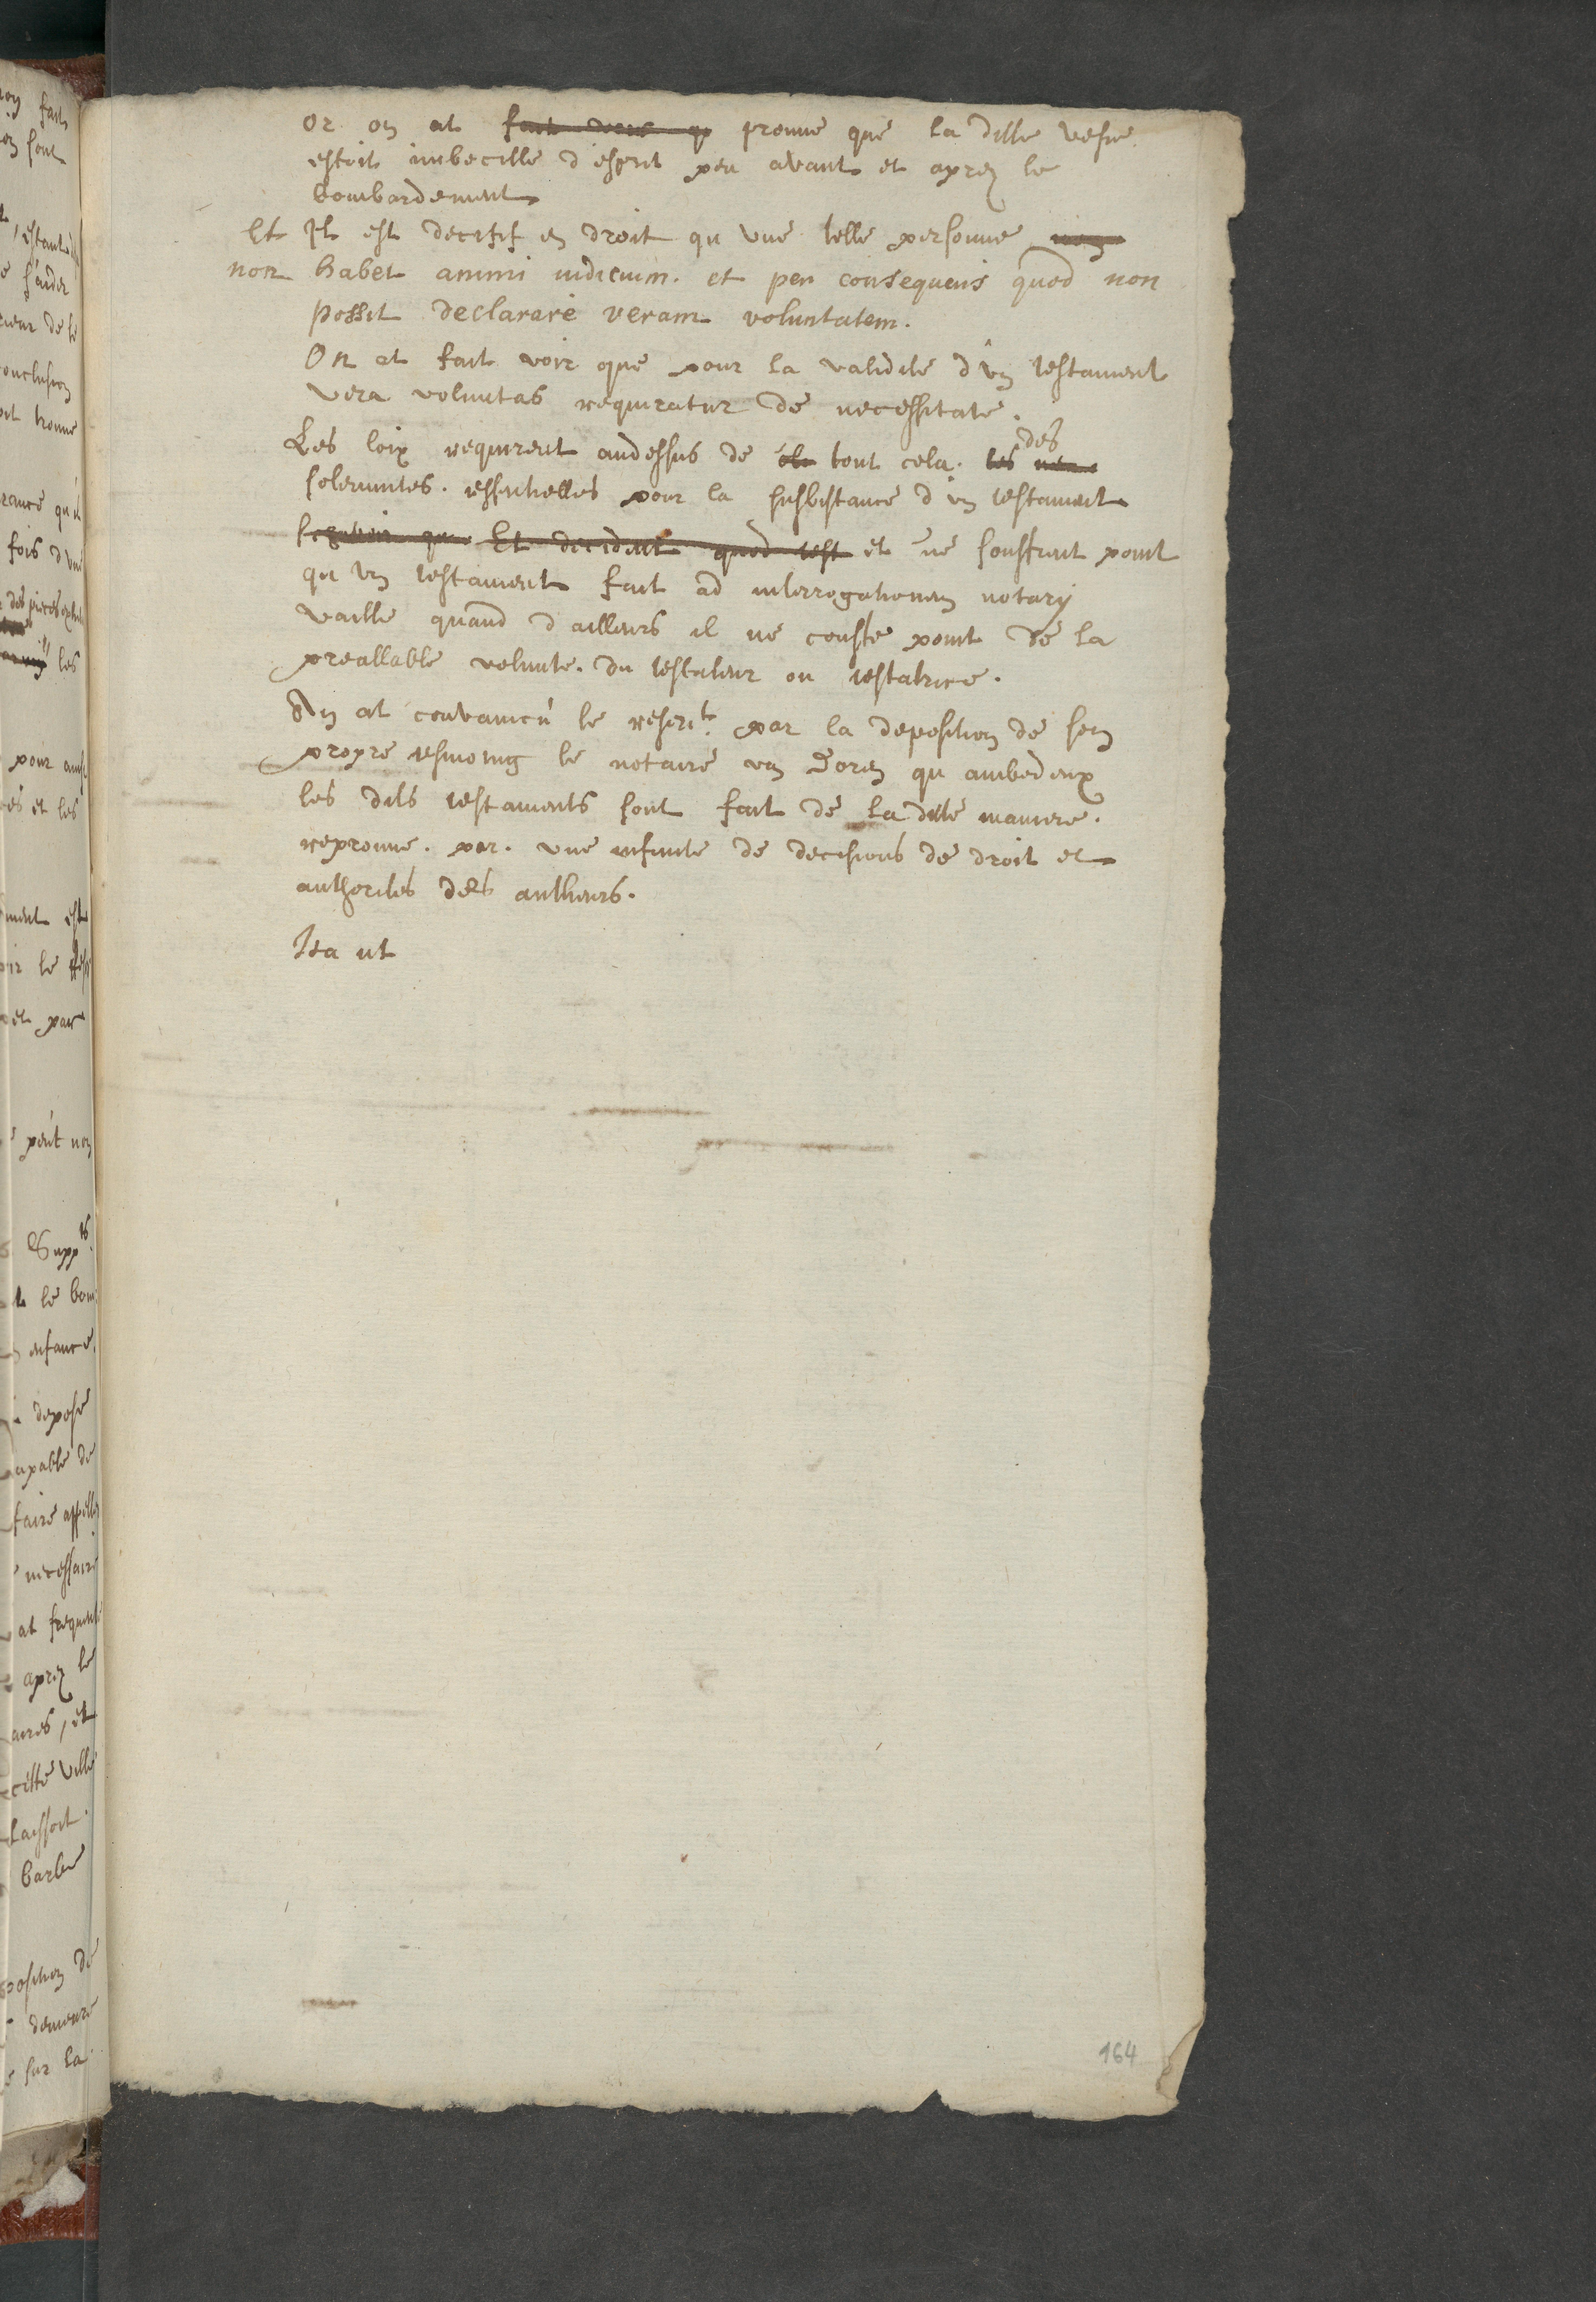 or on at fait voir q prouué que la ditte vefue
estoit imbecille d'esprit peu avant et aprez le
bombardement
Et Il est decisif en droit qu une telle personne non
non habet animi iudicium. et per consequens quod non
possit declarare veram voluntatem.
On at fait voir que pour la validité d'un testament
vera voluntas requiratur de necessitate.
des
Les loix requirent audessus de tout cela. les
solemnites. essentielles pour la subsistance d'un testament
scavoir que Et decident quod test et ne souffrent point
qu un testament fait ad interrogationem notarij
vaille quand d ailleurs il ne conste point de la
preallable volunte. du testateur ou testatrice.
On at convaincu le rescrit. par la deposition de son
propre tesmoing le notaire van Doren qu ambedeux
les dits testaments sont fait de la ditte maniere.
reprouué. par. une infinite de decisions de droit et
authorites des autheurs.
Ita ut
164